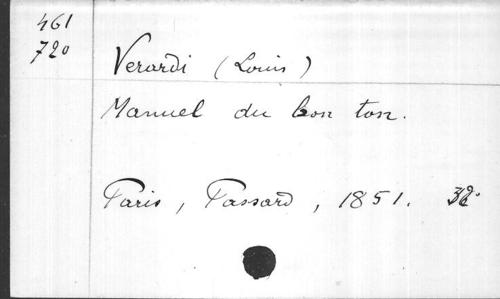 461
720
Verardi (Louis)
Manuel du bon ton.
Paris, Passard, 1851. 32º